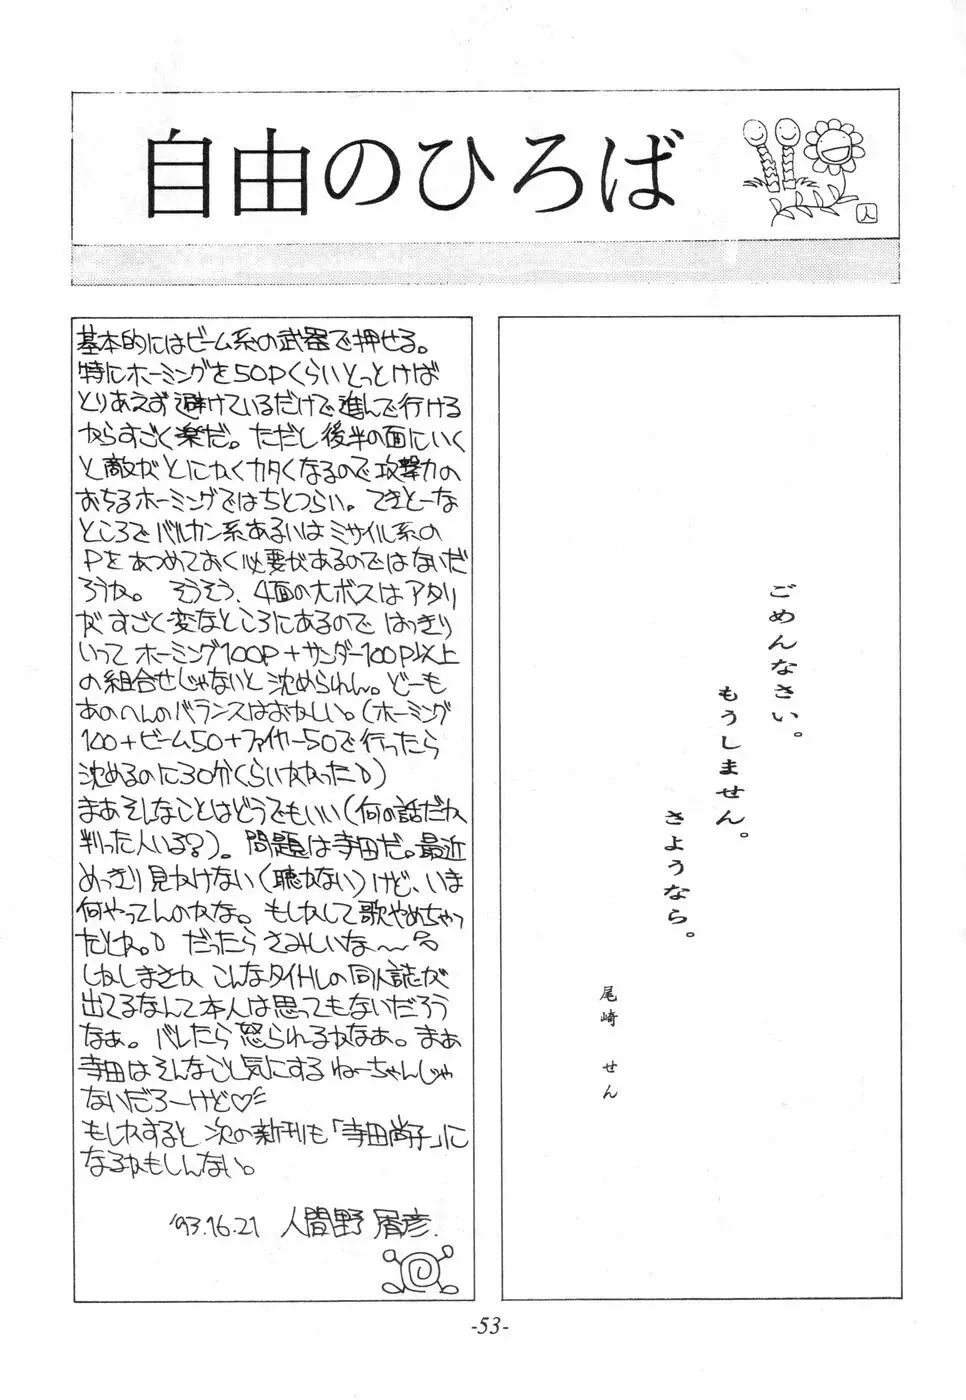 自由のひろば
人
基本的にはビーム系の武器で押せる。
特にホーミングを50Pくらいとっとけば
とりあえず避けているだけで進んで行ける
からすごく楽だ。ただし後半の面にいく
と敵がとにかくカタくなるので攻撃力の
おちるホーミングではちとつらい。てきとーな
ところでバルカン系あるいはミサイル系の
Pをあつめておく必要があるのではないだ
ろうか。 そうそう、4面の大ボスはアタリ
がすごく変なところにあるので はっきり
いって ホーミング100P+サンダー100P以上
の組合せじゃないと沈められん。どーも
あのへんのバランスはおかしい。(ホーミング
100+ビーム50+ファイヤー50で行ったら
沈めるのに30分くらいかかった)
まあそんなことはどうでもいい(何の話だか
判った人いる?)。 問題は寺田だ。最近
めっきり見かけない(聴かない)けど、いま
何やってんのかな。 もしかして歌やめちゃっ
たとか。 だったらさみしいな〜
しかしまさか こんなタイトルの同人誌が
出てるなんて本人は思ってもないだろう
なぁ。 バレたら怒られるかなあ。まぁ
寺田はそんなこと気にする ねーちゃんじゃ
ないだろーけど♡
もしかすると 次の新刊も「寺田尚子」に
なるかもしんない。
'93.16.21 人間野 屑彦.
ごめんなさい。
もうしません。
さようなら。
尾崎 せん
-53-